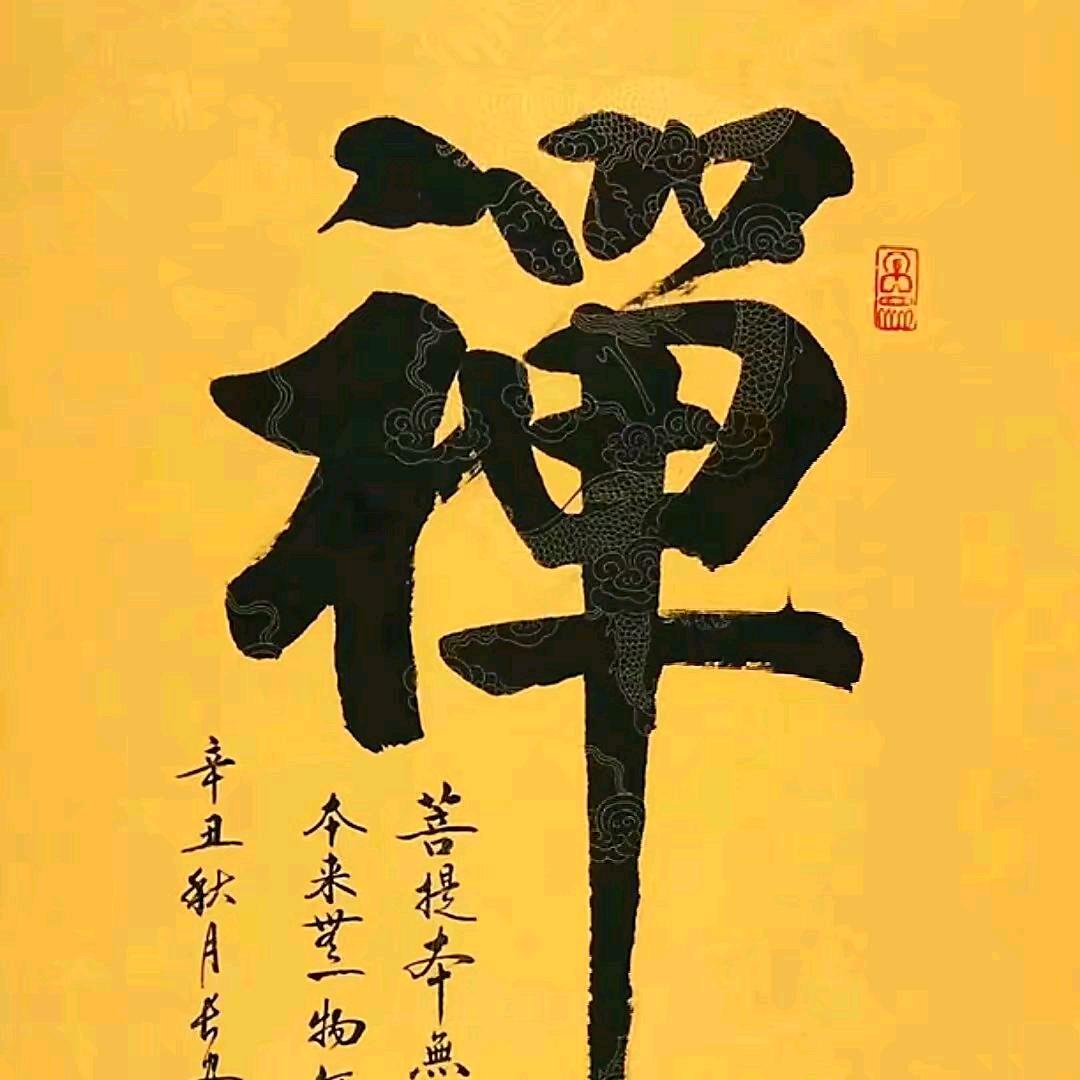 禪
菩提本無
本来無一物
辛丑秋月长